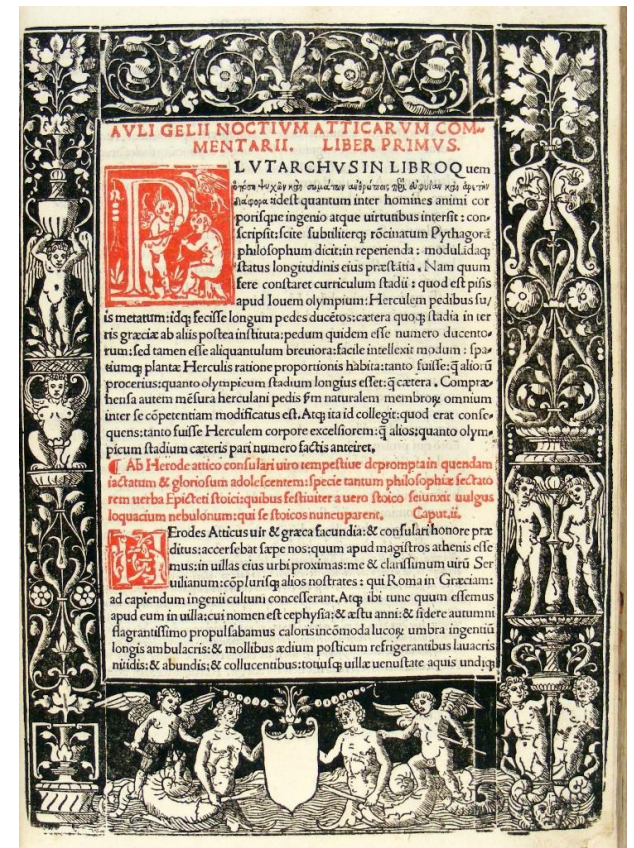 AVLI GELII NOCTIVM ATTICARVM COM-
MENTARII. LIBER PRIMVS.
PLVTARCHVS IN LIBRO Quem
ψυχῶν καὶ σωμάτων
διαφορα: idest quantum inter homines animi cor
porisque ingenio atque uirtutibus intersit: con
scripsit: scite subtiliterq; rōcinatum Pythagorā
philosophum dicit: in reperienda: modulādaq;
status longitudinis eius præstātia. Nam quum
fere constaret curriculum stadii: quod est pisis
apud Iouem olympium: Herculem pedibus su/
is metatum: idq; fecisse longum pedes ducētos: cætera quoq; stadia in ter
ris græciæ ab aliis postea instituta: pedum quidem esse numero ducento-
rum: sed tamen esse aliquantulum breuiora: facile intellexit modum: spa-
tiumq; plantæ Herculis ratione proportionis habita: tanto fuisse: q̄ aliorū
procerius: quanto olympicum stadium longius esset: q̄ cætera. Compræ-
hensa autem mēsura herculani pedis ꝑm naturalem membroꝝ omnium
inter se cōpetentiam modificatus est. Atq; ita id collegit: quod erat conse-
quens: tanto fuisse Herculem corpore excelsiorem: q̄ alios: quanto olym-
picum stadium cæteris pari numero factis anteiret.
¶ Ab Herode attico consulari uiro tempestiue deprompta in quendam
iactatum & gloriosum adolescentem: specie tantum philosophiæ sectato
rem uerba Epicteti stoici: quibus festiuiter a uero stoico seiunxit uulgus
loquacium nebulonum: qui se stoicos nuncuparent. Caput.ii.
HErodes Atticus uir & græca facundia: & consulari honore præ
ditus: accersebat sæpe nos: quum apud magistros athenis esse
mus: in uillas eius urbi proximas: me & clarissimum uirū Ser
uilianum: cōplurisq; alios nostrates: qui Roma in Græciam:
ad capiendum ingenii cultum concesserant. Atq; ibi tunc quum essemus
apud eum in uilla: cui nomen est cephysia: & æstu anni: & sidere autumni
flagrantissimo propulsabamus caloris incōmoda lucoꝝ umbra ingentiū
longis ambulacris: & mollibus ædium posticum refrigerantibus lauacris
nitidis: & abundis: & collucentibus: totiusq; uillæ uenustate aquis undiq;